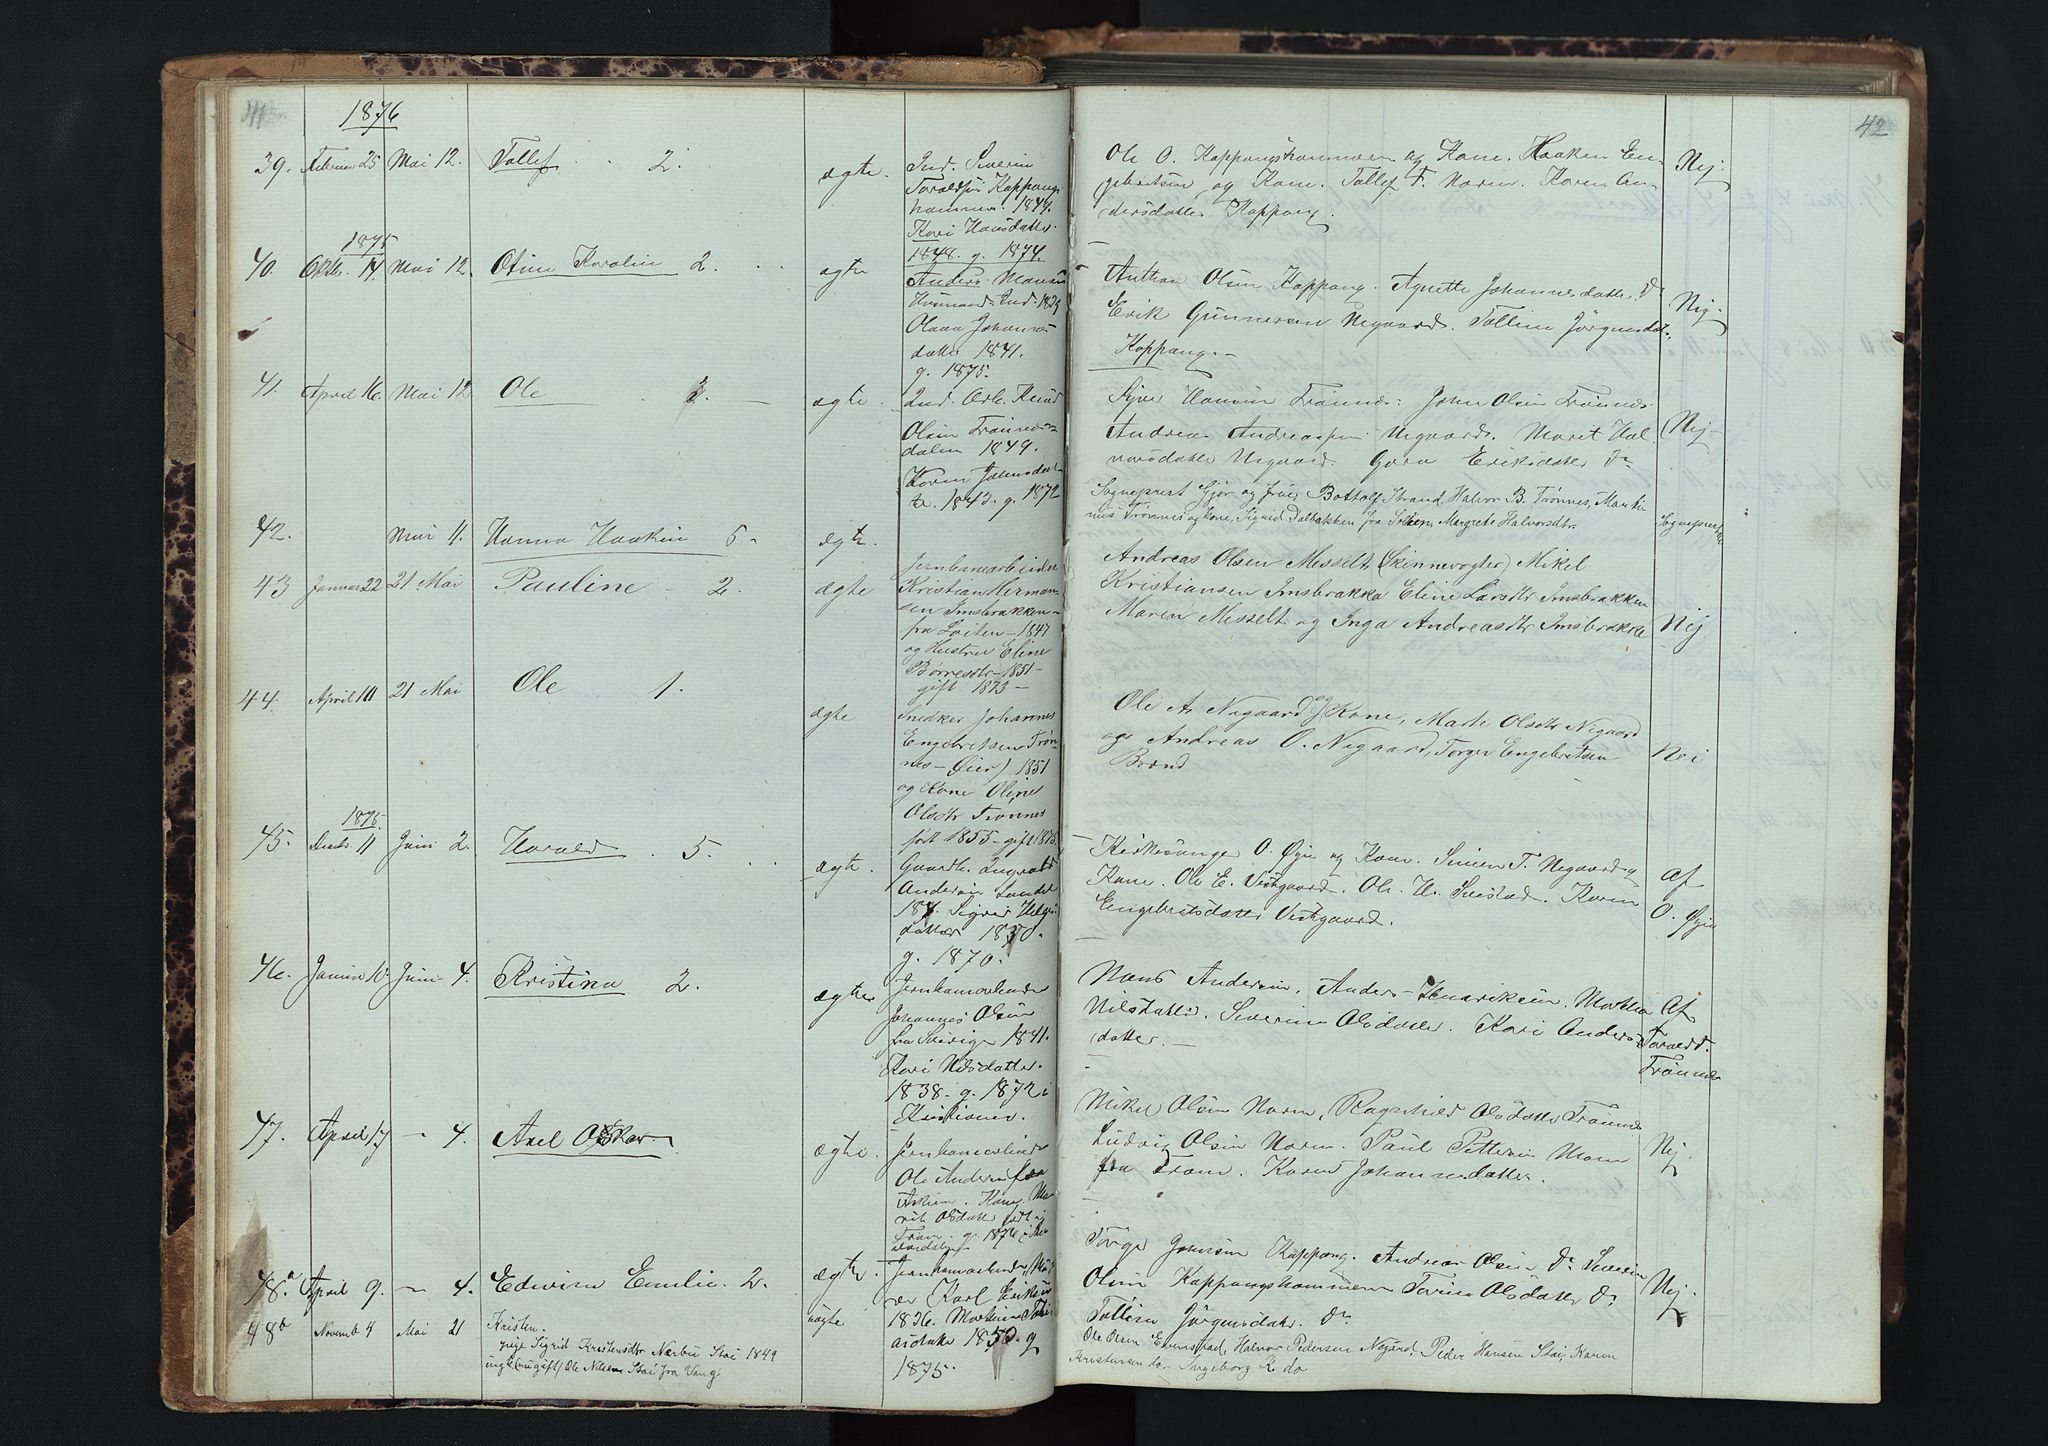 41
1876
39. Februar 25 Mai 12. Tollef 2. ægte.
Ind. Severin
Toraldsen Koppangs
hammer. 1849.
Kari Hansdatter.
1848. g. 1874.
1875
40. Oktbr. 14. Mai 12. Otine Karoline 2. ægte
Anders Monsen
Husmand Ind. 1829
Olava Johannes
datter 1841.
g. 1875.
41. April 16. Mai 12 Ole 3. ægte.
Ind. Arb. Knud
Olsen Trønnes
dalen 1849.
Karen Johnsdat
ter. 1843. g. 1872
42. Mai 11. Hanna Haakine 5. ægte.
43 Januar 22 21 Mai Pauline 2. ægte
Jernbanearbeider
Kristian Herman
sen Imsbrakken
fra Løiten 1847
og Hustru Eline
Børresdtr 1851
gift 1873
44 April 10 21 Mai Ole 1. ægte
Snedker Johannes
Engebretsen Trøn
nes (Øier) 1851
og Kone Oline
Olsdtr Trønnes
født 1855 gift 1875
1875.
45. Decbr. 11 Juni 2. Harald 5. ægte
Gaardb.
Andersen
Sigrid Helges
datter 1850.
g. 1870.
46. Januar 10. Juni 4. Kristina 2. ægte
Jernbanearbeider
Johannes Olsen
fra Sverige 1841.
Kari Nilsdatter.
1838. g. 1872 i
Kristiania.
47. April 17 4. Axel Oskar ægte.
Jernbanearbeider
Ole Andersen fra
Kone Ma
rit Olsdatter født i
Tron. g. 1876 i
48a April 9. 4. Edvine Emilie. 2. ægte.
Jernbanearbeider, Mu
rer Karl Eriksen
1836.
1850. g
1875.
48b Novemb 4 Mai 21 Kristen uægte
pige Sigrid Kristensdtr Nerbu Stai 1849
ungk (nu gift) Ole Nilsen Stai fra Vang
42
Ole O. Koppangshammeren og Kone. Haaken En
gebretsen og Kone. Tollef T. Noren. Karen An
dersdatter Koppang. Nej.
Anthon Olsen Koppang. Agnette Johannesdatter do
Erik Gunnersen Negaard. Tolline Jørgensdat.
Koppang. Nej.
Syver Hansen Trønnes. John Olsen Trønnes.
Andrea Andreassen Negaard. Marit Hal
vorsdatter Negaard. Goro Eriksdatter do Nej
Sognepræst Gjør og Frue, Bottolf Strand, Halvor B. Trønnes, Marti
nus Trønnes og Kone, Sigrid Dalbakken fra Solien, Margrete Halvorsdtr. Sognepræsten
Andreas Olsen Messelt (Skinnevogter) Mikel
Kristiansen Imsbrakka Eline Larsdtr Imsbrakken
Maren Messelt og Inga Andreasdtr Imsbrakka Nej
Ole A. Nygaard og Kone, Marte Olsdtr Nygaard
og Andreas O. Nygaard, Torger Engebretsen
Brænd Nei
Kirkesanger O. Øyen og Kone. Simen T. Negaard og
Kone. Ole E. Vestgaard. Ole H. Svestad. Karen
Engebretsdatter Vestgaard. Af
O. Øyen
Hans Andersen. Anders Henriksen. Marthea
Nilsdatter. Severine Olsdatter. Kari Anders
datter. Af
Torald T.
Trønnes
Mikel Olsen Noren, Ragnhild Olsdatter Trønnes
Ludvig Olsen Noren. Paul Pettersen Moen
fra Tron. Karen Johannesdatter. Nej.
Torger Johnsen Koppang. Andreas Olsen do Severin
Olsen Koppangshammeren Torine Olsdatter do
Tolline Jørgensdatter. do Nej.
Ole Olsen Evenstad, Halvor Pedersen Nygård, Peder Hansen Stai, Karen
Kristensen do, Ingeborg K do